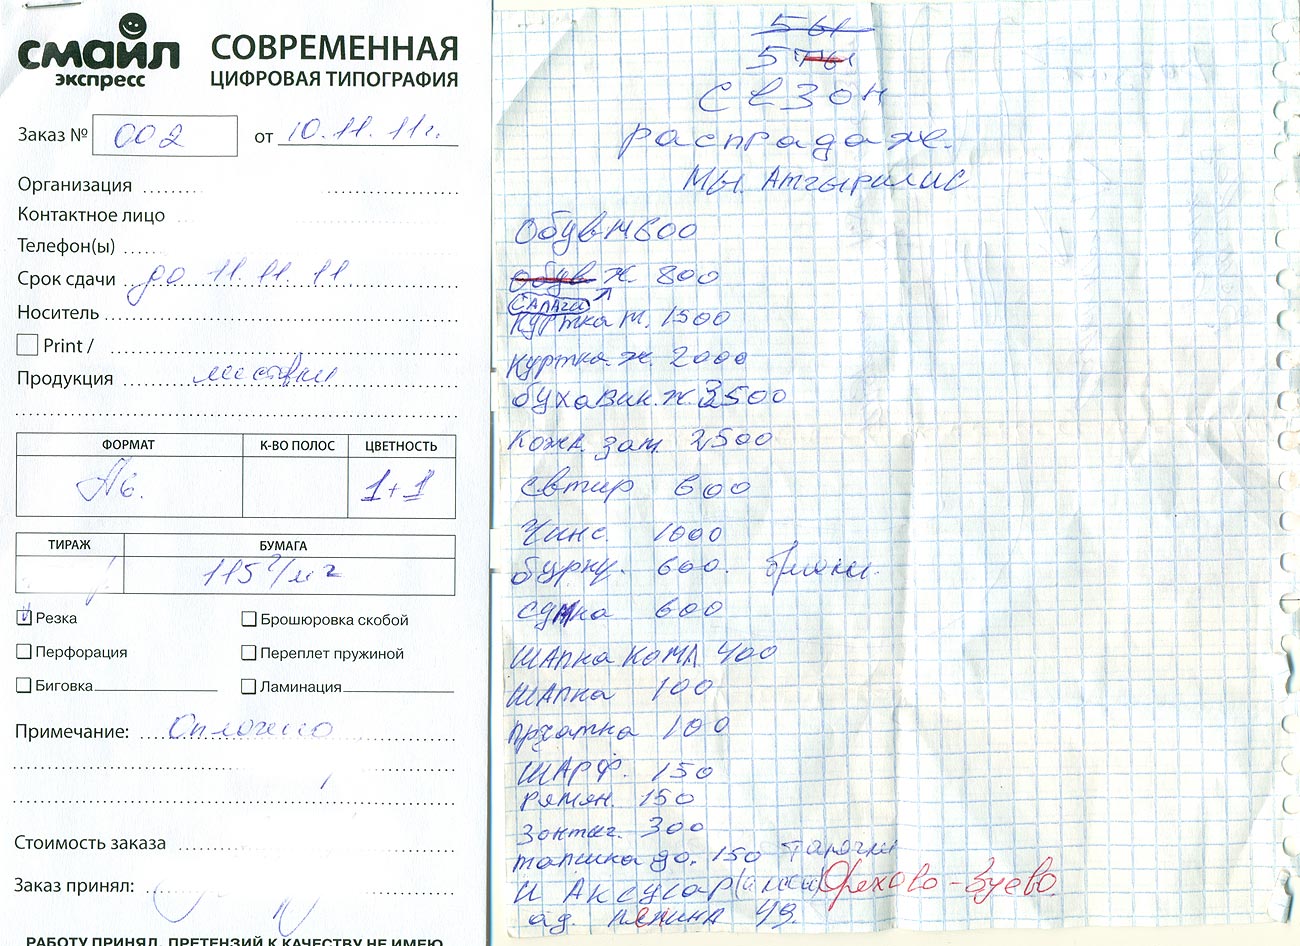 смайл
экспресс
СОВРЕМЕННАЯ
ЦИФРОВАЯ ТИПОГРАФИЯ
Заказ № 002 от 10.11.11г.
Организация
Контактное лицо
Телефон(ы)
Срок сдачи до 11.11.11.
Носитель
Print /
Продукция листовки
ФОРМАТ К-ВО ПОЛОС ЦВЕТНОСТЬ
А6. 1+1
ТИРАЖ БУМАГА
115 г/м2
Резка Брошюровка скобой
Перфорация Переплет пружиной
Биговка Ламинация
Примечание: Оплочено
Стоимость заказа
Заказ принял:
РАБОТУ ПРИНЯЛ. ПРЕТЕНЗИЙ К КАЧЕСТВУ НЕ ИМЕЮ
5 ы
5 ты
СЕЗОН
распрадаже.
МЫ. Атгырилис
Обув М 600
обув Ж. 800
САПАГИ
Куртка М. 1500
Куртка. ж. 2000
бухавик. ж. 3500
Кожа. зам. 2500
Свтир 600
Чинс. 1000
бурку. 600. брюки.
сумка 600
ШАпка КОЖА 400
ШАпка 100
прчатка 100
ШАРФ. 150
рямян. 150
Зонтиг. 300
тапичка до. 150 Тапочки
И Аксусар Орехово-Зуево
ад. ленина 49.